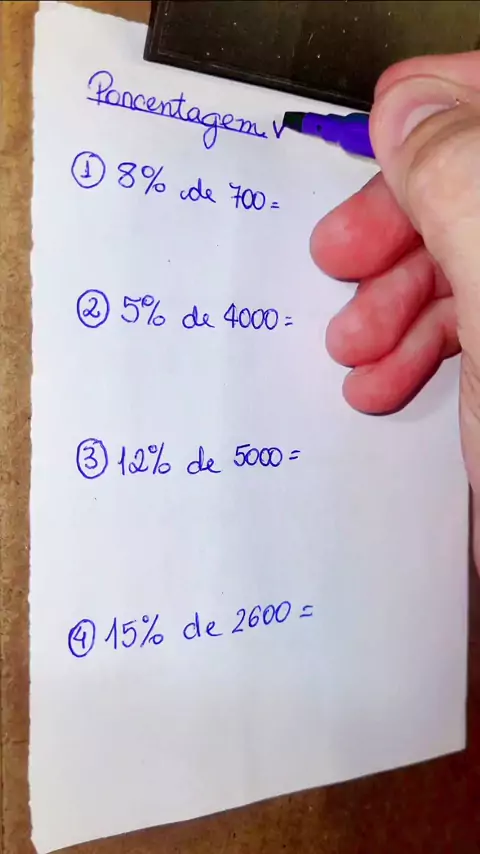 Porcentagem
① 8% de 700=
② 5% de 4000=
③ 12% de 5000=
④ 15% de 2600=